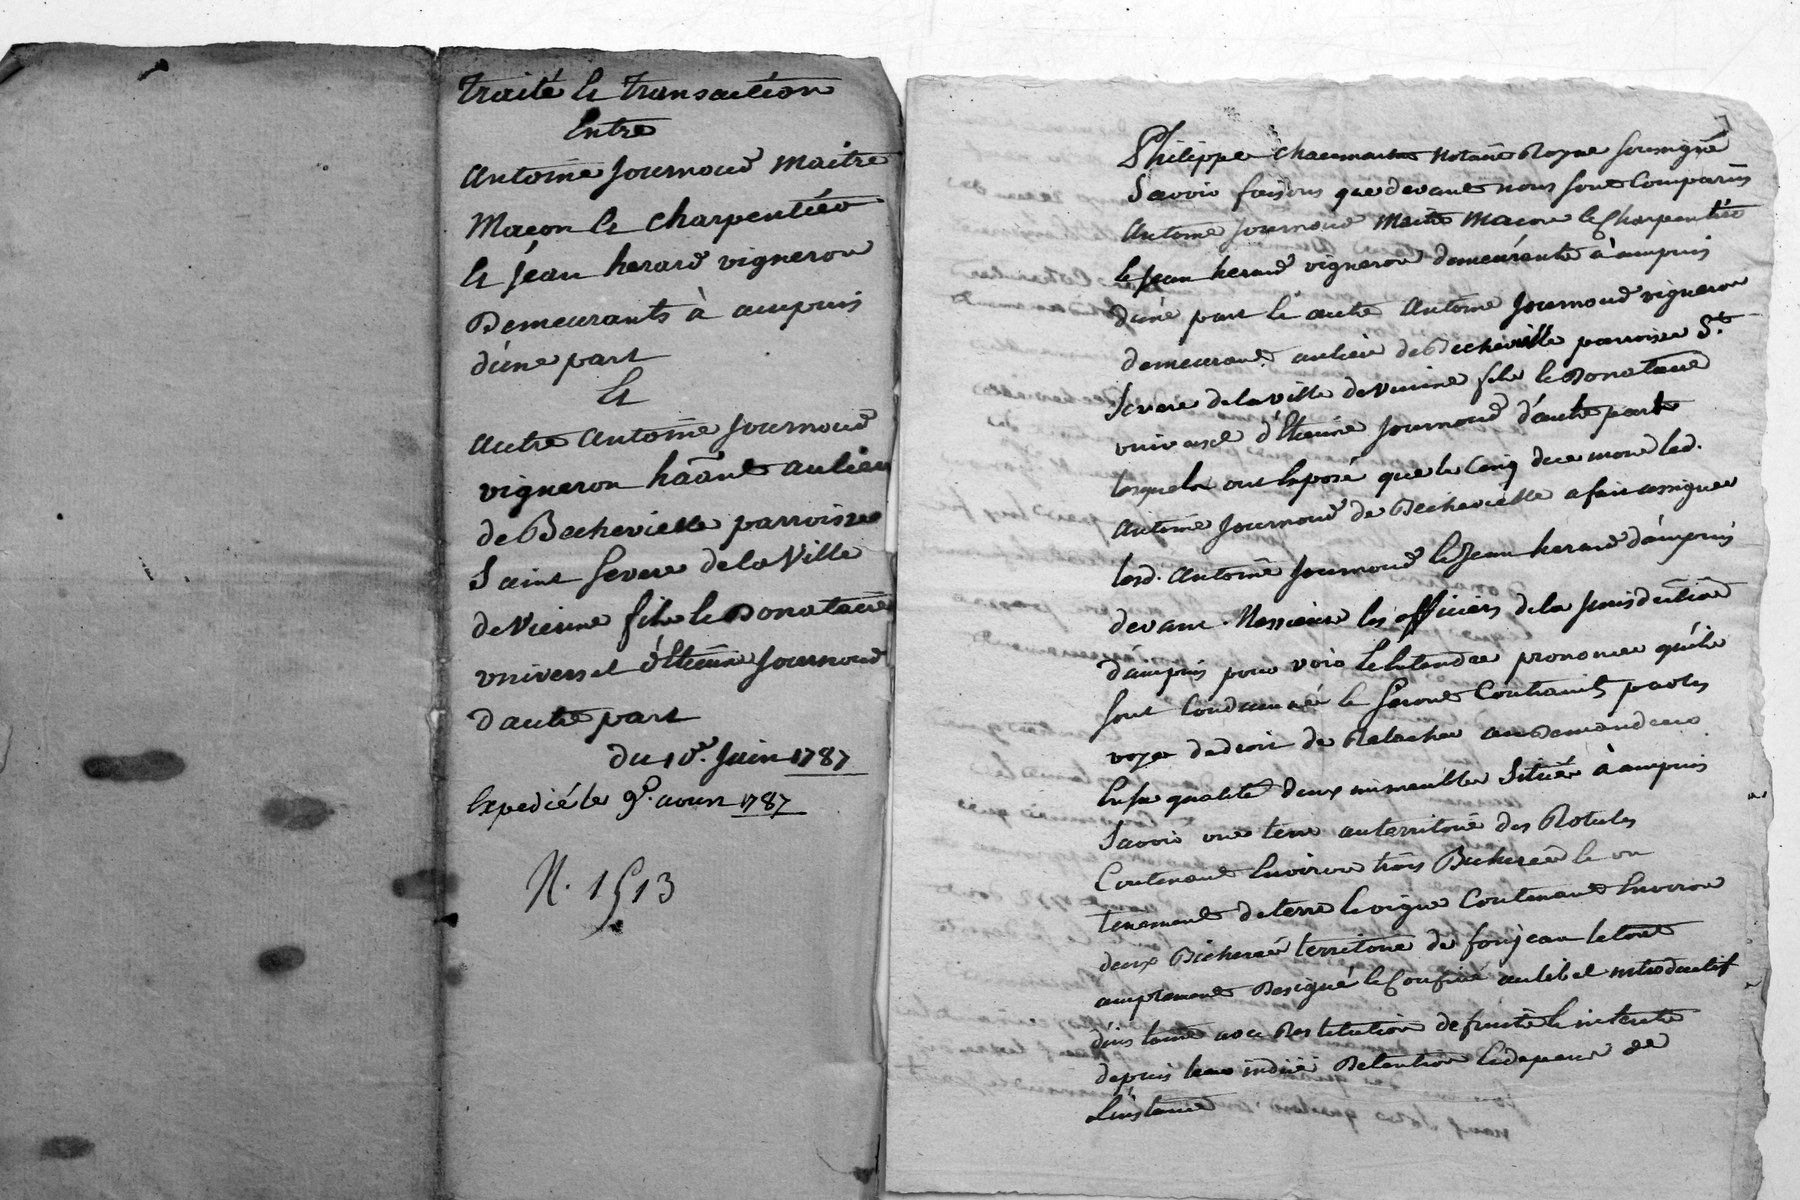 Traité et transaction
Entre
Antoine Journoud Maitre
Maçon et charpentier
et Jean herard vigneron
Demeurants à ampuis
d'une part
Et
autre antoine Journoud
vigneron habitant au lieu
de Bechevielle parroisse
Saint Severe de la Ville
de Vienne fils et Donataire
universel d'Etienne Journoud
d'autre part
du 10e. Juin 1787
Expedié le 9e. aoust 1787
N. 1513
Philippe notaire Royal soussigné
Savoir faisons que devant nous sont Comparus
Antoine Journoud Maitre Macon et Charpentier
et Jean herard vigneron demeurants à ampuis
d'une part et autre Antoine Journoud vigneron
demeurant au lieu de Bechevielle parroisse St.
Severe de la ville de Vienne fils et Donataire
universel d'Etienne Journoud d'autre part
lesquels ont Exposé que le Cinq du mois led.
Antoine Journoud de Bechevielle a fait assigner
lesd. Antoine Journoud et Jean herard d'ampuis
devant Messieurs les officiers de la Jurisdiction
d'ampuis pour voir et Entendre prononcer qu'ils
sont Condamnés et seront Contraints par les
voyes de droit de Relacher au Demandeur
En sa qualité deux immeubles Situés à ampuis
Savoir une terre au territoire des Rotules
Contenant Environ trois Bicherées et un
tenement de terre et vigne Contenant Environ
deux Bicherées territoire de fonjean le tout
amplement Designé et Confiné au libel introductif
d'instance avec Restitution de fruits et interets
depuis leur indüe Detention et depens de
L'instance